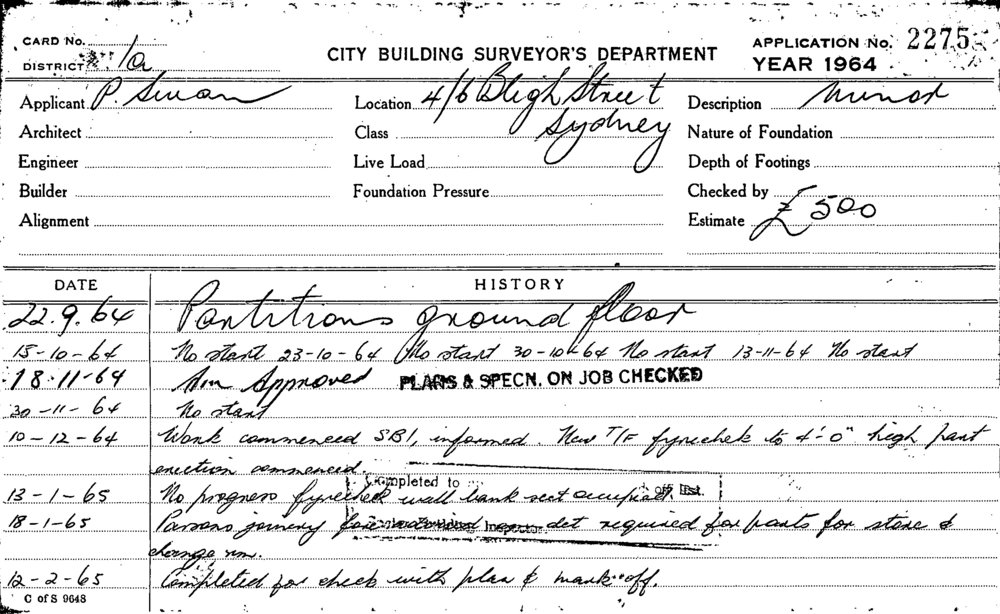 CARD No.
DISTRICT 1a
CITY BUILDING SURVEYOR'S DEPARTMENT
APPLICATION No. 2275
YEAR 1964
Applicant P. Swan
Location 4/6 Bligh Street
Sydney
Description Minor
Architect
Class
Nature of Foundation
Engineer
Live Load
Depth of Footings
Builder
Foundation Pressure
Checked by
Alignment
Estimate £500
DATE HISTORY
22.9.64 Partitions ground floor
15-10-64 No start 23-10-64 No start 30-10-64 No start 13-11-64 No start
18.11-64 Approved PLANS & SPECN. ON JOB CHECKED
30-11-64 No start
10-12-64 Work commenced SBI, informed. New T/F fyrechek to 4'-0" high part
erection commenced.
Completed to
13-1-65 No progress fyrechek wall bank sect off list.
18-1-65 joinery det required for parts for store &
change rm.
12-2-65 Completed for check with plan & mark off.
C of S 9648